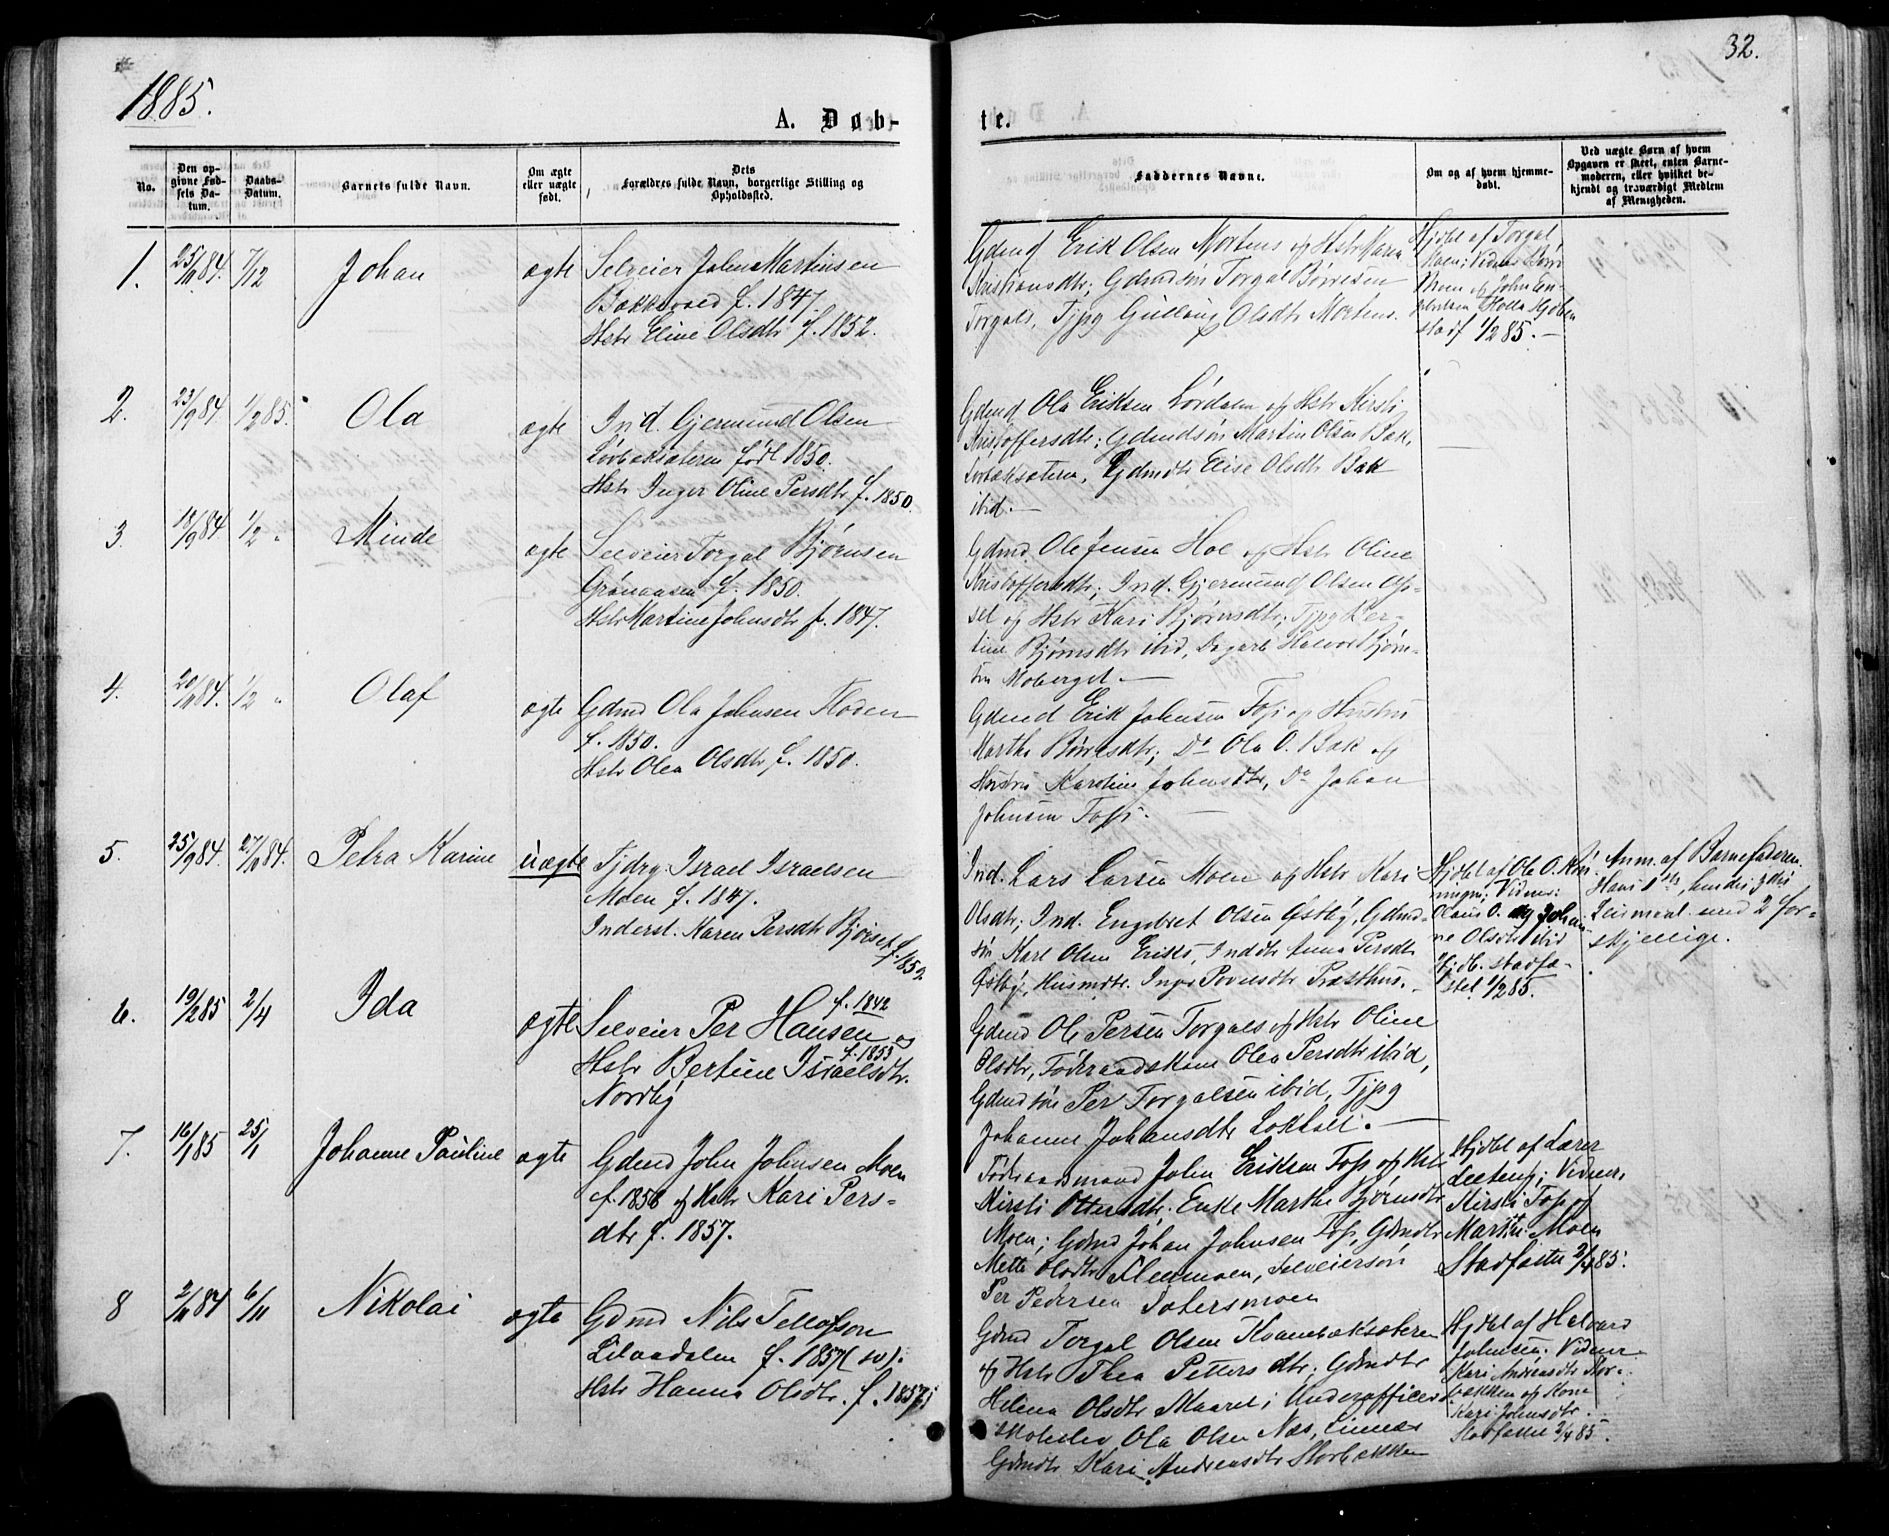 1885.
32.
A. Døb-
te.
No.
Den op-
givne Fød-
sels Da-
tum.
Daabs-
Datum.
Barnets fulde Navn.
Om ægte
eller uægte
født.
Dets
Forældres fulde Navn, borgerlige Stilling og
Opholdssted.
Faddernes Navne.
Om og af hvem hjemme-
døbt.
Ved uægte Børn af hvem
Opgaven er skeet, enten Barne-
moderen, eller hvilket be-
kjendt og troværdigt Medlem
af Menigheden.
1.
25/11 84.
7/12
Johan
ægte
Selveier John Martinsen
f. 1847.
Hstr Eline Olsdtr f. 1852.
Gdmd Erik Olsen Mortens og Hstr Maren
Kristiansdtr; Gdmdsøn Torgal Børresen
Torgals, Tjpg Gulloug Olsdtr Mortens.
Hjdbt af Torgal
Moen; Vidner Børre
Moen og John
stadf 1/2 85. —
2.
23/9 84.
1/2 85.
Ola
ægte
Ind. Gjermund Olsen
Lørbæksæteren født 1850.
Hstr Inger Oline Persdtr f. 1850.
Gdmd Ola Eriksen Lørdalen og Hstr Kirsti
Kristoffersdtr; Gdmdsøn Martin Olsen Bak,
Lørbæksæteren, Gdmdtr Elise Olsdtr Bak
ibid. —
3.
18/9 84
1/2 "
Minde
ægte
Selveier Torgal Bjørnsen
Grønaasen f. 1850.
Hstr Martine Johnsdtr f. 1847.
Gdmd Ole Jensen Hoe og Hstr Oline
Kristoffersdtr; Ind. Gjermund Olsen Op-
sel og Hstr Kari Bjørnsdtr; Tjpg Ker-
tine Bjørnsdtr ibid, Dagarb Halvor Bjørn-
sen Moberget. —
4.
20/11 84.
1/2 "
Olaf
ægte
Gdmd Ola Johnsen Floden
f. 1850.
Hstr Olea Olsdtr f. 1850.
Gdmd Erik Johnsen Fos og Hustru
Marthe Børresdtr; Do Ola O. Bak og
Hustru Karoline Johnsdtr, Do Johan
Johnsen Foss. —
5.
25/9 84.
27/9 84.
Petra Karine
uægte
Tjdrg. Israel Israelsen
Moen f. 1847.
Inderst. Karen Persdtr Bjørset f. 1852.
Ind. Lars Larsen Moen og Hstr Kari
Olsdtr; Ind. Engebret Olsen Østby, Gdmd-
søn Karl Olsen Eriks, Inddtr Anna Persdtr
Østby, Husmdtr. Inger Povelsdtr Præsthus. —
Hjdbt af Ola O. Kvi
ningen; Vidner:
Olaus O. og Johan-
ne Olsdtr ibid
Hjdb. stadfæ-
stet 1/2 85.
Anm. af Barnefaderen.
Hans 1ste, hendes 3die
Leiermaal med 2 for-
skjellige.
6.
19/2 85
2/4
Ida
ægte
Selveier Per Hansen f. 1842 og
Hstr Bertine Israelsdtr. f. 1853
Nordby
Gdmd Ole Persen Torgals og Hstr Oline
Olsdtr, Føderaadskone Olea Persdtr ibid,
Gdmdsøn Per Torgalsen ibid, Tjpg
Johanne Johansdtr Løkhoel. —
7.
16/1 85
25/1
Johanne Pauline
ægte
Gdmd John Johnsen Moen
f. 1858 og Hstr Kari Pers-
dtr f. 1857.
Føderaadsmand John Eriksen Foss og Hstr
Kirsti Ottersdtr. Enke Marthe Bjørnsdtr
Moen; Gdmd Johan Johnsen Foss, Gdmdtr
Mette Olsdtr Flermoen, Selveiersøn
Per Pedersen Sætersmoen
Hjdbt af Lærer
Leeteng; Vidner,
Kirsti Foss og
Marthe Moen
Stadfæstet 2/4 85.
8
2/11 84
6/11
Nikolai
ægte
Gdmd Nils Tellofson
Lilaadalen f. 1857 (sv).
Hstr Hanna Olsdtr. f. 1857;
Gdmd Torgal Olsen Kvanbæksæteren
og Hstr Thea Pettersdtr; Gdmdtr
Helena Olsdtr Maaret; Underofficers-
skoleelev Ola Olsen Næs, Linnes
Gdmdtr Kari Andreasdtr Storbækken
Hjdbt af Halvard
Johnsen. Vidner
Kari Andreasdtr Stor-
bækken og Kone
Kari Johnsdtr.
Stadfæstet 2/4 85.